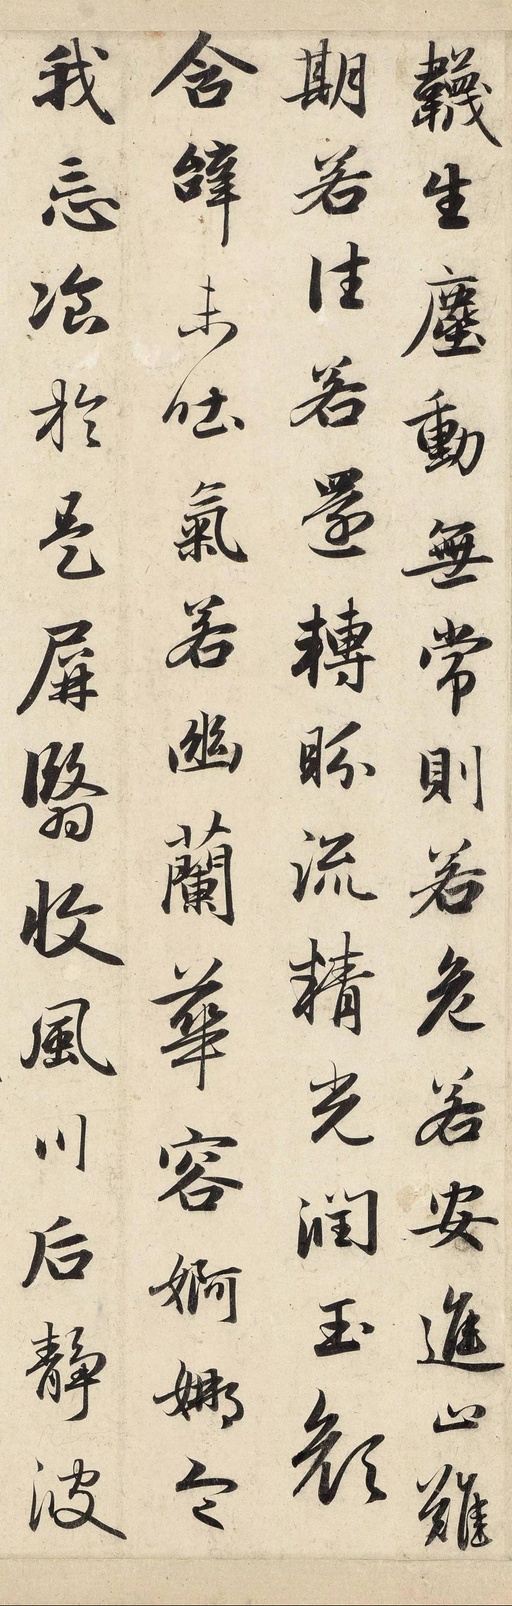 韈生塵動無常則若危若安進止難
期若往若還轉盼流精光潤玉顏
含辭未吐氣若幽蘭華容婀娜令
我忘飡於是屏翳收風川后靜波